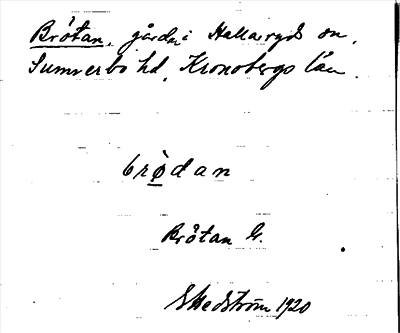 Bråtan, gård i Hallaryds sn,
Sunnerbo hd, Kronobergs län.
bròdan
Bråtan G.
Hedström 1920